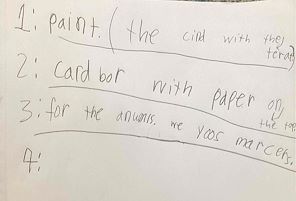 1: paint. (the cind with the
terat)
2: Card bor with paper on
the top
3: for the anumls, we yoos marcers.
4: